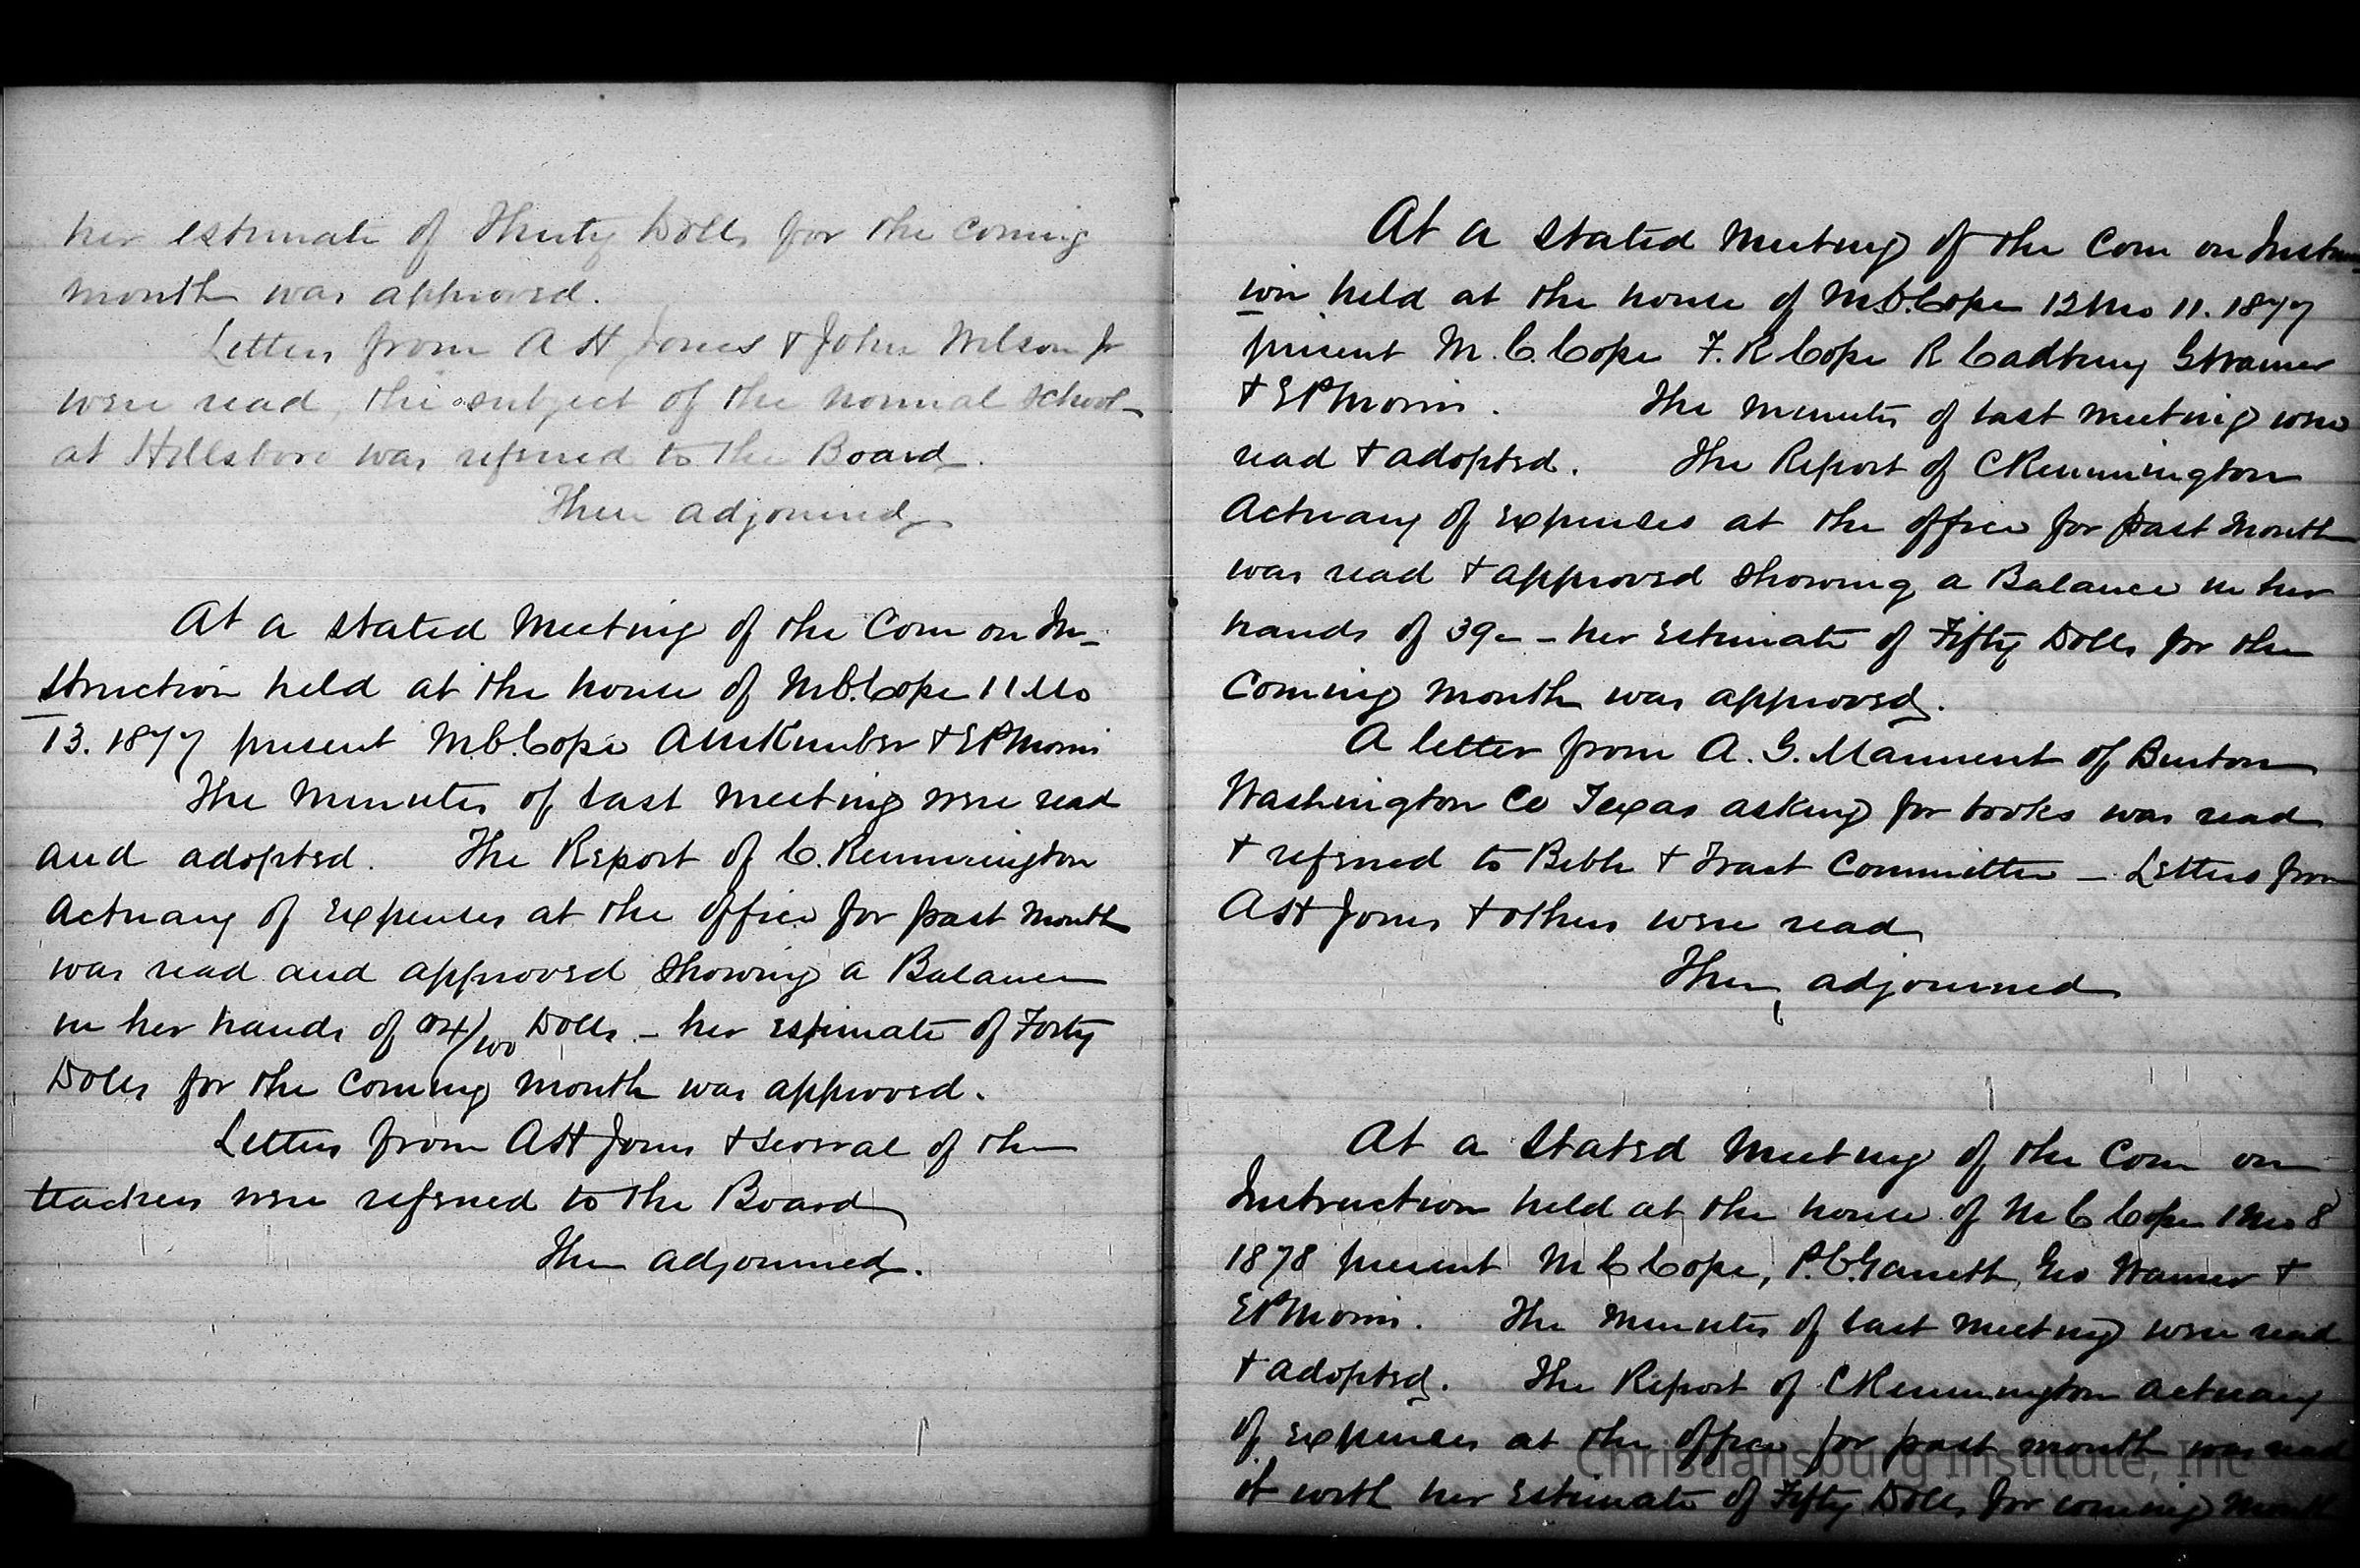 her estimate of Thirty Dolls for the coming
month was approved.
Letters from A H Jones & John Wilson Jr
were read, the subject of the normal school
at Hillsboro was referred to the Board.
Then adjourned
At a stated Meeting of the Com on In-
struction held at the house of M.C. Cope 11 Mo
13. 1877 present M.C. Cope A M Kimber & E P Morris
The Minutes of last meeting were read
and adopted. The Report of C. Remmington
Actuary of expenses at the office for past month
was read and approved showing a Balance
in her hands of 04/100 Dolls - her estimate of Forty
Dolls for the coming month was approved.
Letters from A H Jones & several of the
teachers were referred to the Board
Then adjourned.
At a stated Meeting of the Com on Instruc-
ion held at the house of M.C. Cope 12 Mo 11. 1877
present M. C. Cope F. R Cope R Cadbury G Warner
& E P Morris. The minutes of last meeting were
read & adopted. The Report of C Remmington
Actuary of expenses at the office for past month
was read & approved showing a Balance in her
hands of - her estimate of Fifty Dolls for the
Coming month was approved.
A letter from A. G. Marment of Burton
Washington Co Texas asking for books was read
& referred to Bible & Tract Committee - Letters from
A H Jones & others were read
Then adjourned
At a Stated Meeting of the Com on
Instruction held at the house of M C Cope 1 Mo 8
1878 present M C Cope, P. C. Garrett, Geo Warner &
E P Morris. The Minutes of last meeting were read
& adopted. The Report of C Remmington Actuary
of expenses at the office for past month was read
it with her estimate of Fifty Dolls for coming month
Christiansburg Institute, Inc